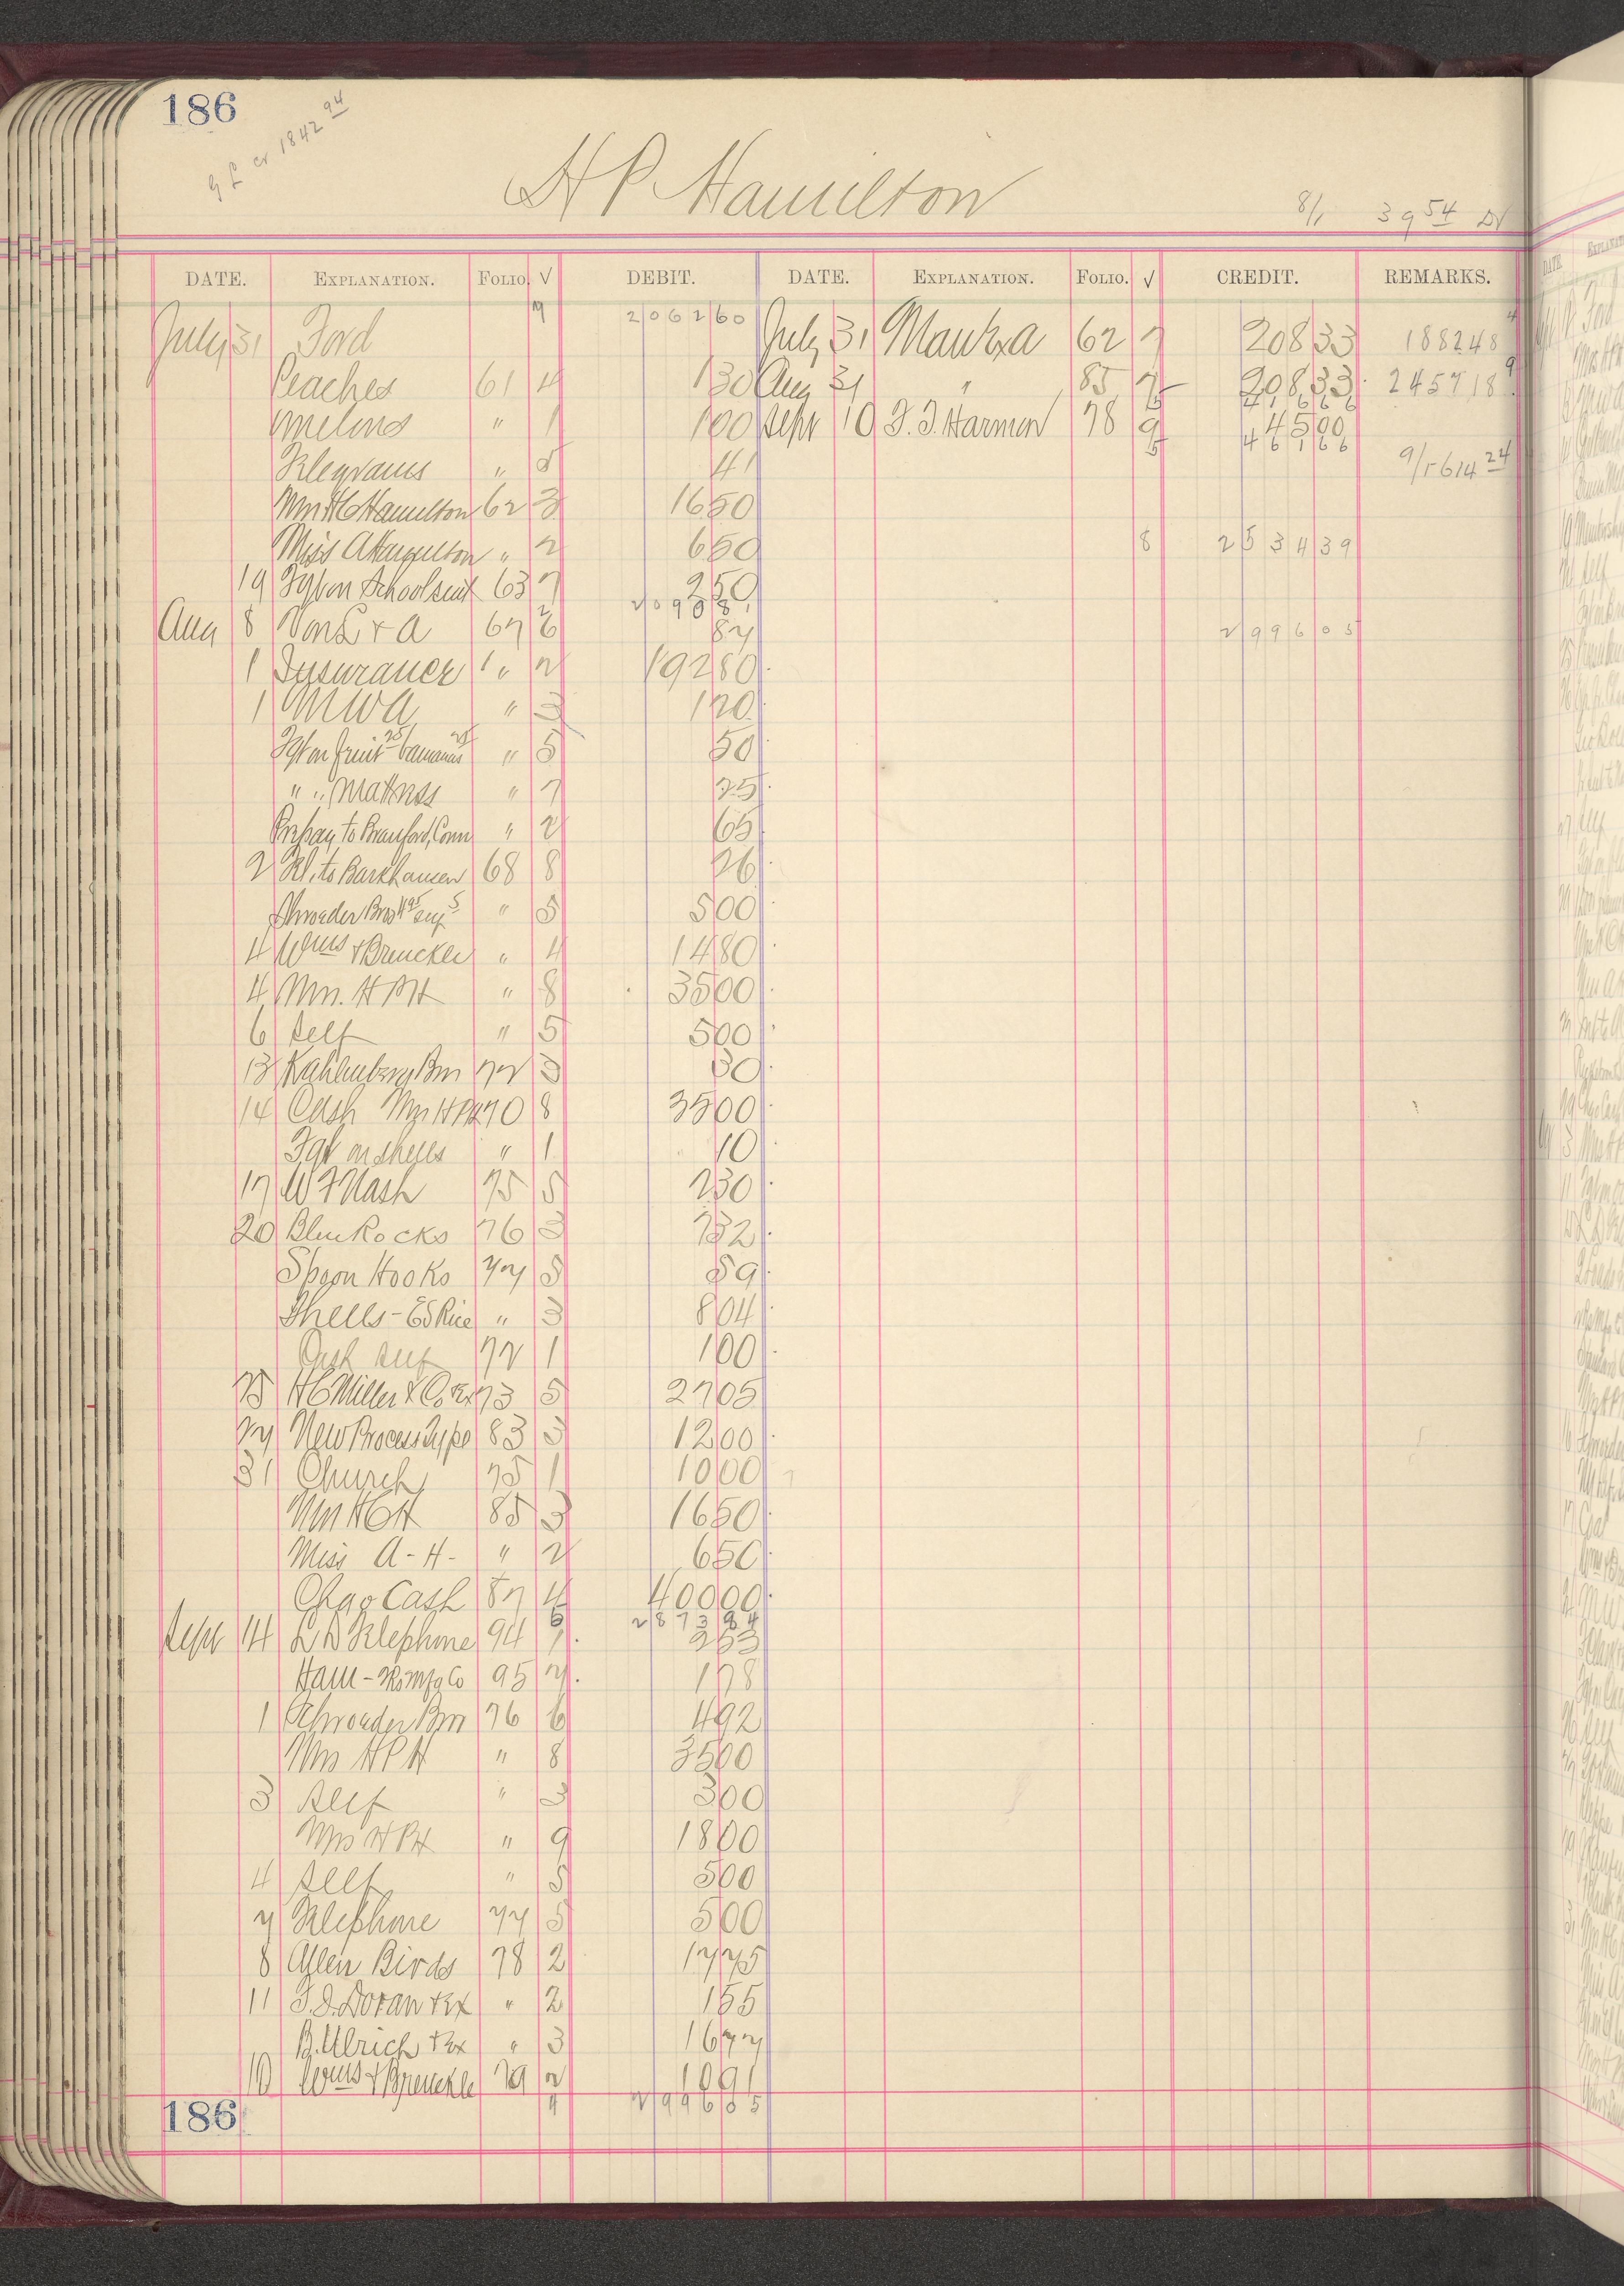 186
1842 94
H P Hamilton
8/1 39 54 Dr
DATE. EXPLANATION. FOLIO. √ DEBIT. DATE. EXPLANATION. FOLIO. √ CREDIT. REMARKS.
July 31 Ford 2062 60 July 31 62 7 208 33 1882 48
Peaches 61 4 1 30 Aug 31 " 85 7 208 33 2457 18
melons " 1 1 00 Sept 10 78 9 45 00
461 66
Telegrams " 5 41 9/1 614 24
Mrs H C Hamilton 62 3 16 50
Miss A Hamilton " 2 6 50 8 2534 39
19 Fgt on School seat 63 7 2 50
Aug 8 67 6 87 2996 05
1 Insurance " 2 192 80
1 MWA " 3 1 20
Fgt on fruit 25 bananas 25 " 5 50
" " Mattress " 7 25
Prepay to Branford, Conn " 2 65
2 Tel. to Barkhausen 68 8 26
Schroeder Bros " 5 5 00
4 Wms & Bruecker " 4 14 80
4 Mrs. H P H " 8 35 00
6 Self " 5 5 00
13 Kahlenberg Bros 72 3 30
14 Cash Mrs H P H 70 8 35 00
Fgt on shells " 1 10
17 W F Nash 75 5 2 30
20 Blue Rocks 76 3 7 32
Spoon Hooks 77 5 59
Shells - " 3 8 04
Cash self 72 1 1 00
25 H C Miller & Co 73 5 27 05
27 New Process Type 83 3 12 00
31 Church 75 1 10 00
Mrs H C H 85 3 16 50
Miss A - H - " 2 6 50
Chgo Cash 87 4 400 00
2873 84
Sept 14 L D Telephone 94 7 2 53
Ham - Mfg Co 95 7 1 78
1 Schroeder Bros 76 6 4 92
Mrs H P H " 8 35 00
3 Self " 3 3 00
Mrs H P H " 9 18 00
4 Self " 5 5 00
7 Telephone 77 5 5 00
8 Allen Birds 78 2 17 75
11 " 2 1 55
B. Ulrich " 3 16 77
10 Wms & Bruecker 79 2 10 91
2996 05
186